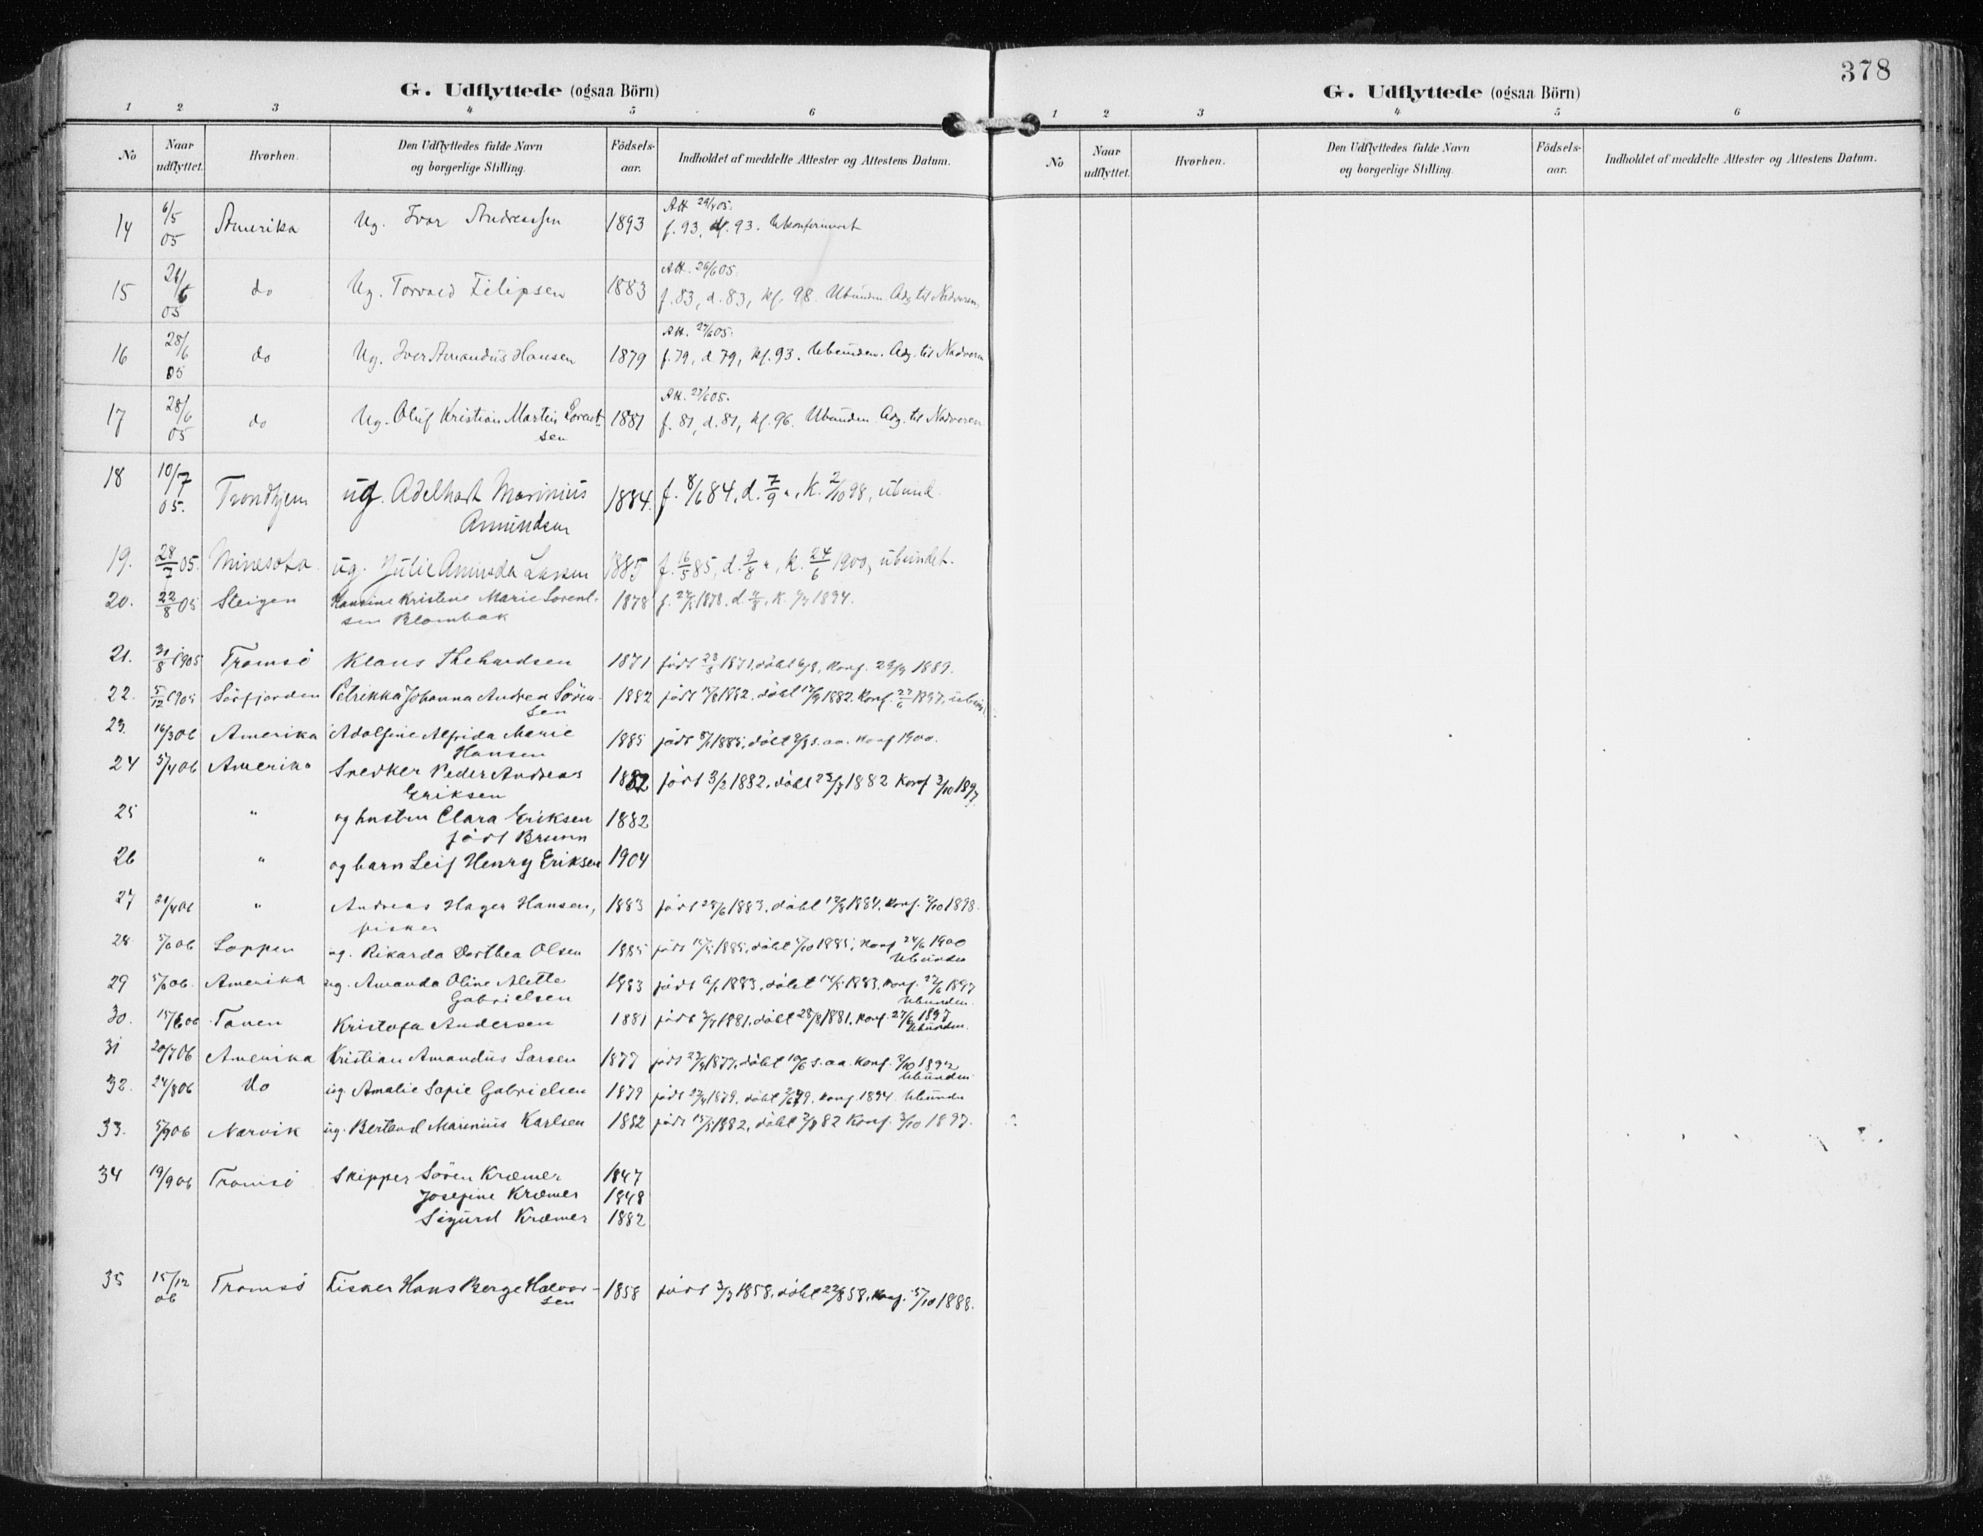 G. Udflyttede (ogsaa Börn)
1 2 3 4 5 6
No Naar udflyttet. Hvorhen. Den Udflyttedes fulde Navn og borgerlige Stilling. Födsels-aar. Indholdet af meddelte Attester og Attestens Datum.
14 6/5 05 Amerika Ug. Ivar Andreassen 1893 Att. 29/4 05. f. 93, d. 93. Ukonfirmert
15 26/6 05 do Ug. Torvald Filipsen 1883 Att. 26/6 05. f. 83, d. 83, kf. 98. Ubunden. Adg. til Nadveren.
16 28/6 05 do Ug. Iver Amandus Hansen 1879 Att. 27/6 05. f. 79, d 79, kf. 93. Ubunden. Adg. til Nadveren
17 28/6 05 do Ug. Oluf Kristian Martin Lorent-
sen 1881 Att. 27/6 05. f. 81, d. 81, kf. 96. Ubunden. Adg. til Nadveren
18 10/7 05. Trondhjem ug. Adelhart Marinius
Amundsen 1884. f. 8/6 84, d. 7/9 ", k. 2/10 98, ubund.
19. 28/7 05. Minesota ug. Julie Aminda Larsen 1885 f. 16/5 85, d. 9/8 ", k. 24/6 1900, ubundet.
20. 22/8 05 Steigen Hansine Kristine Marie Lorent-
sen Blombak 1878 1878. 1894.
21. 31/8 1905 Tromsö Klaus 1871 født 23/3 1871, döbt konf. 1889.
22. 5/12 1905 Sörfjorden Petrikka Johanna Andrea Sören-
sen 1882 födt 1882. döbt 1882. Konf. 27/6 1897,
23. 16/3 06 Amerika Adolfine Alfrida Marie
Hansen 1885 födt 1885, döbt s. aa. Konf 1900.
24 5/4 06 Amerika Snedker Peder Andreas
Eriksen 1882 födt 3/2 1882, döbt 23/7 1882 Konf 3/10 1897.
25 " og hustru Clara Eriksen
födt Bruun 1882
26 " og barn Leif Henry Eriksen 1904
27 21/4 06 " Andreas Hager Hansen,
fisker 1883 födt 28/6 1883, döbt 1884, Konf. 2/10 1898.
28 5/6 06 Loppen ug. Rikarda Dorthea Olsen 1885 födt 1885, döbt 1885, Konf 24/6 1900
Ubunden
29 5/6 06. Amerika ug. Amanda Oline Alette
Gabrielsen 1883 födt 1883, döbt 1883, Konf. 27/6 1897
Ubunden.
30. 15/6 06 Tanen Kristofa Andersen 1881 födt 1881, döbt 28/8 1881, Konf. 27/6 1897
Ubunden.
31 20/7 06 Amerika Kristian Amandus Larsen 1877 födt 1877, döbt 10/6 s. aa. Konf. 2/10 1892
Ubunden
32. 24/8 06 do ug. Amalie Sofie Gabrielsen 1879 födt 1879, döbt konf. 1894. Ubunden
33. 5/9 06 Narvik ug. Bertend Marinius Karlsen 1882 födt 1882, döbt 82 Konf. 3/10 1897.
34 19/9 06 Tromsö Skipper Sören Kræmer 1847
Josefine Kræmer 1848
Sigurd Kræmer 1882
35 15/12 06 Tromsö Fisker Hans Berge Halvor-
sen 1858 födt 3/3 1858, döbt 58, Konf. 1888.
378
G. Udflyttede (ogsaa Börn)
1 2 3 4 5 6
No Naar udflyttet. Hvorhen. Den Udflyttedes fulde Navn og borgerlige Stilling. Födsels-aar. Indholdet af meddelte Attester og Attestens Datum.